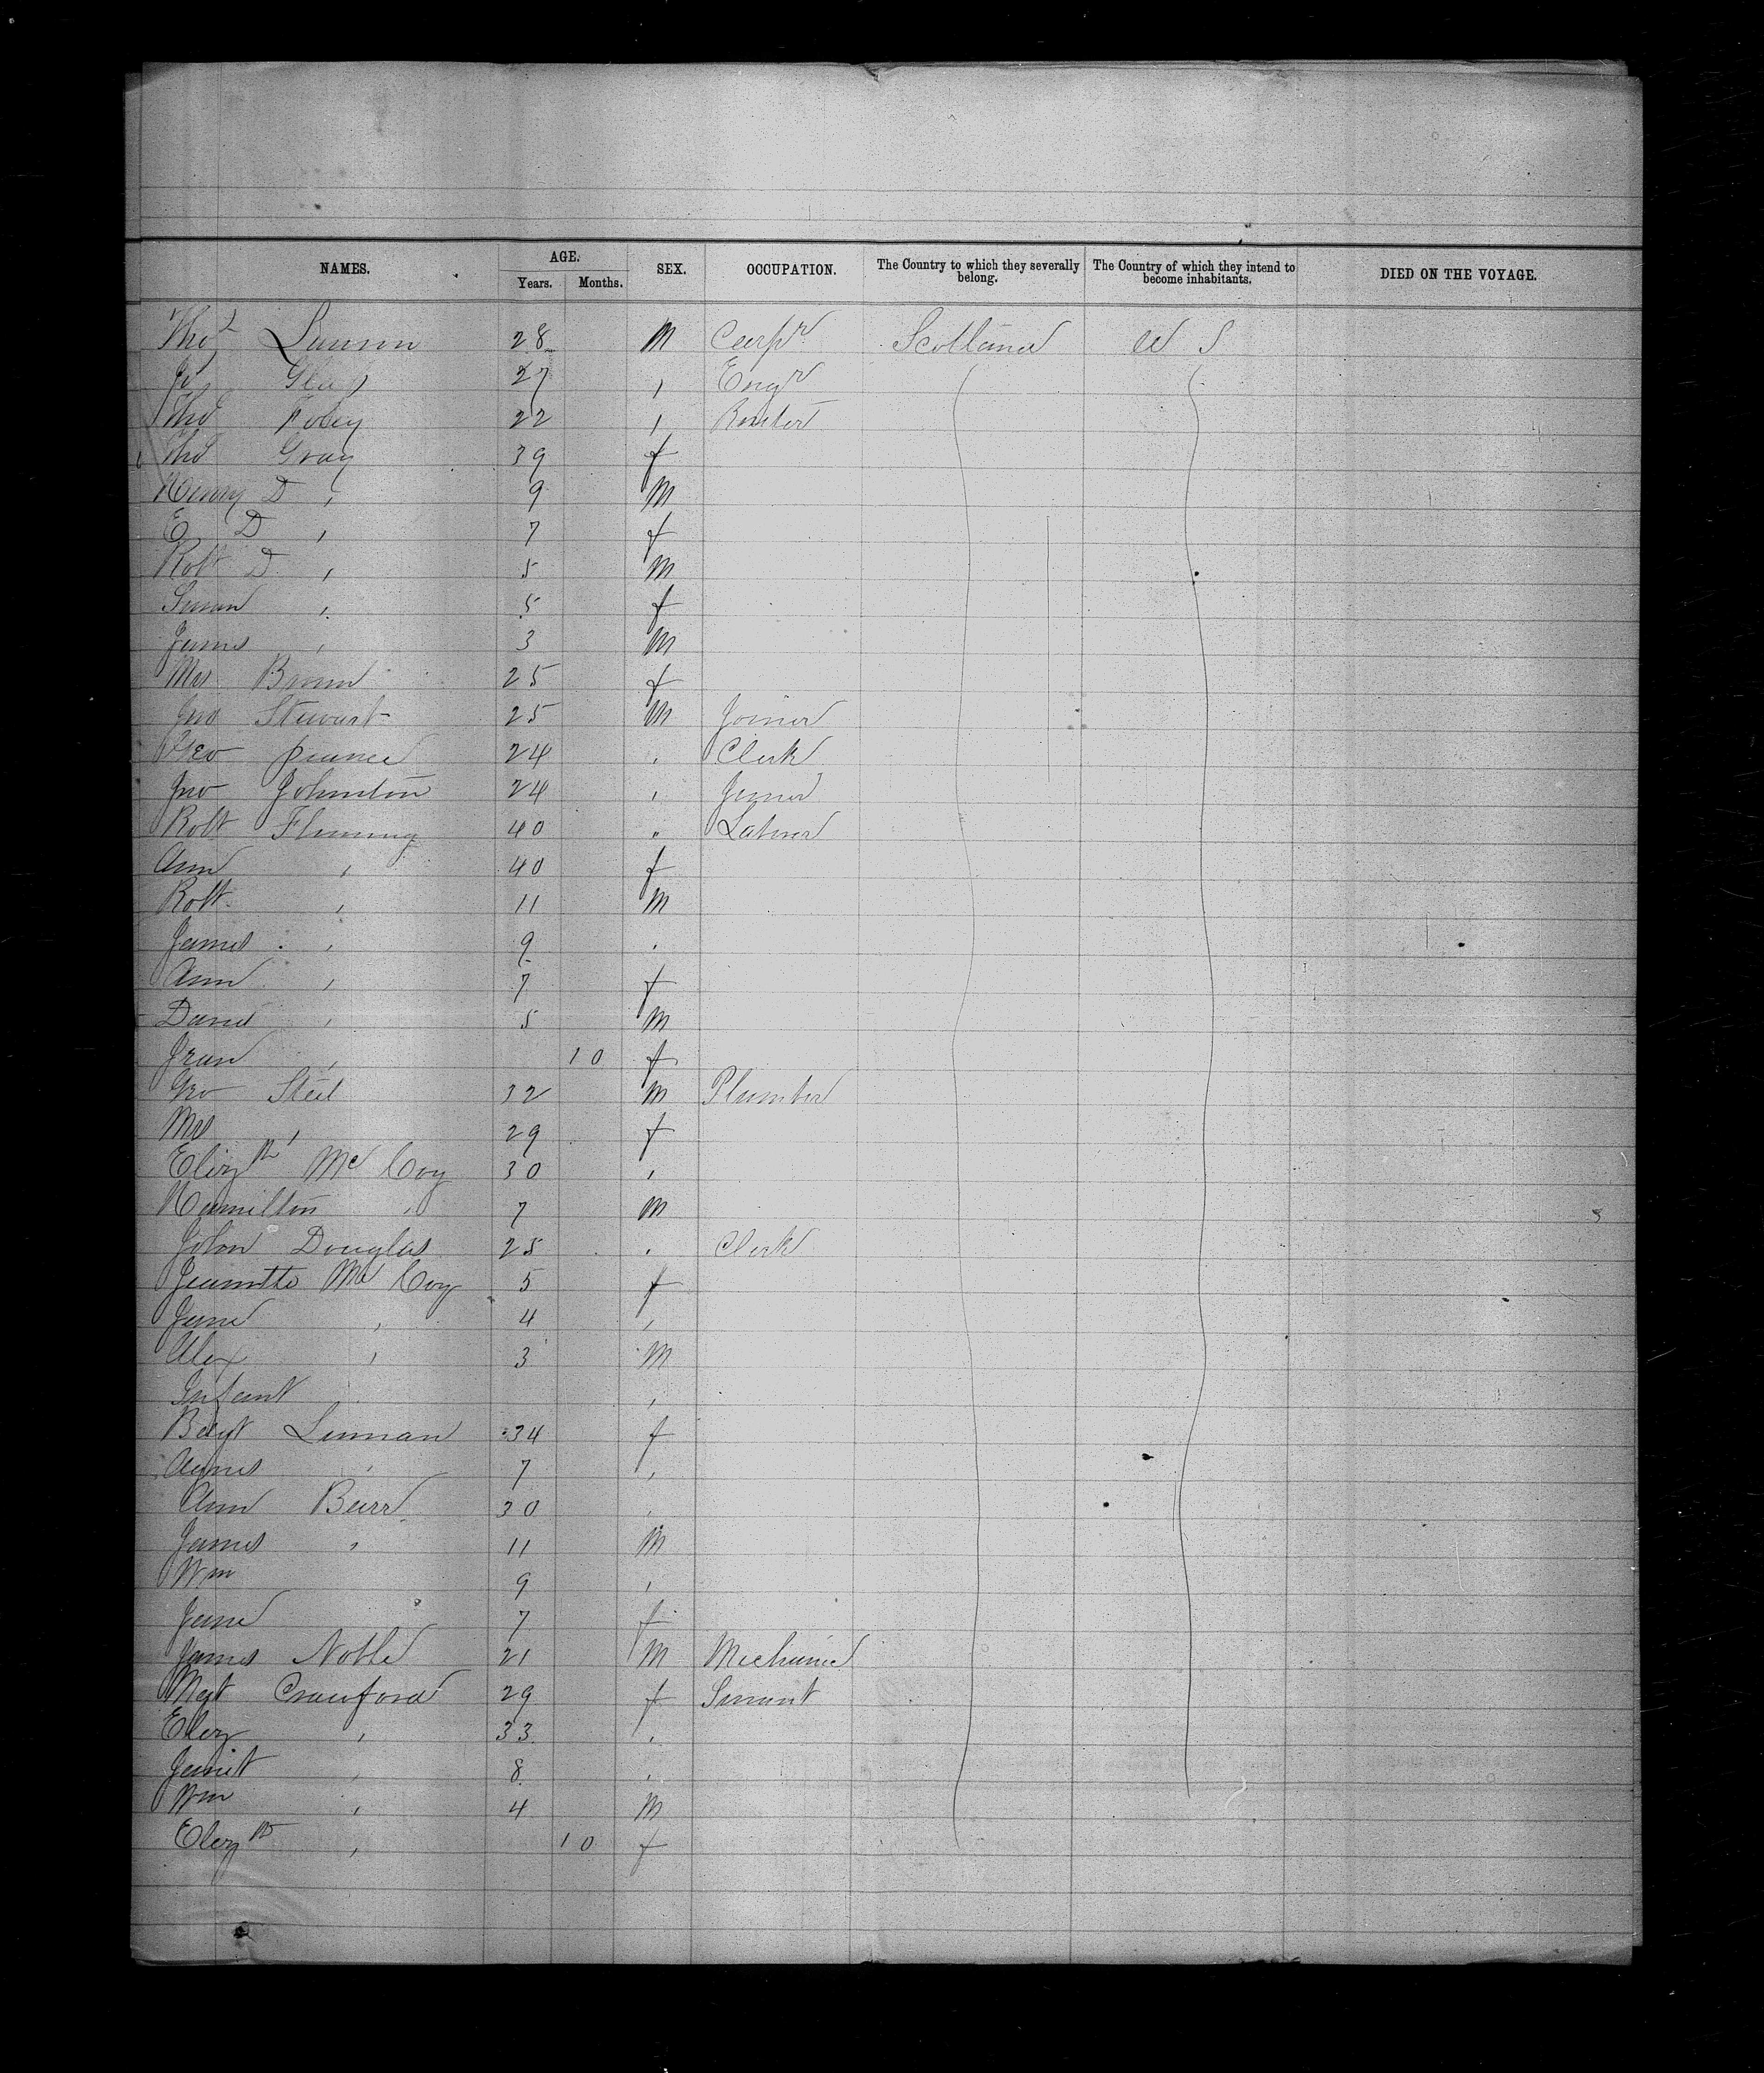 NAMES. AGE. Years. Months. SEX. OCCUPATION. The Country to which they severally belong. The Country of which they intend to become inhabitants. DIED ON THE VOYAGE.
Thos Lawson 28 M Carpr Scotland U S
27 , Engr
Thos Foley 22 ,
Thos Gray 39 f
Henry D , 9 M
E D , 7 f
Robt D , 5 M
Susan , 5 f
James , 3 M
Mrs Brown 25 f
Jno Stewart 25 M Joiner
Geo 24 , Clerk
Jno Johnston 24 , Joiner
Robt Fleming 40 " Laborer
Ann , 40 f
Robt , 11 M
James , 9 .
Ann , 7 f
David , 5 M
Jean , 10 f
Geo Steel 32 M Plumber
Mrs , 29 f
Elizth McCoy 30 ,
Hamilton , 7 M
John Douglas 25 . Clerk
Jeannette McCoy 5 f
Jane , 4 ,
Alex , 3 M
Infant ,
34 f
Agnes , 7 ,
Ann Barr 30 ,
James , 11 M
Wm 9 ,
Jane 7 f
James Noble 21 M Mechanic
Magt Crawford 29 f Servant
Eliz , 33 ,
Janet , 8 ,
Wm , 4 M
Elizth , 10 f